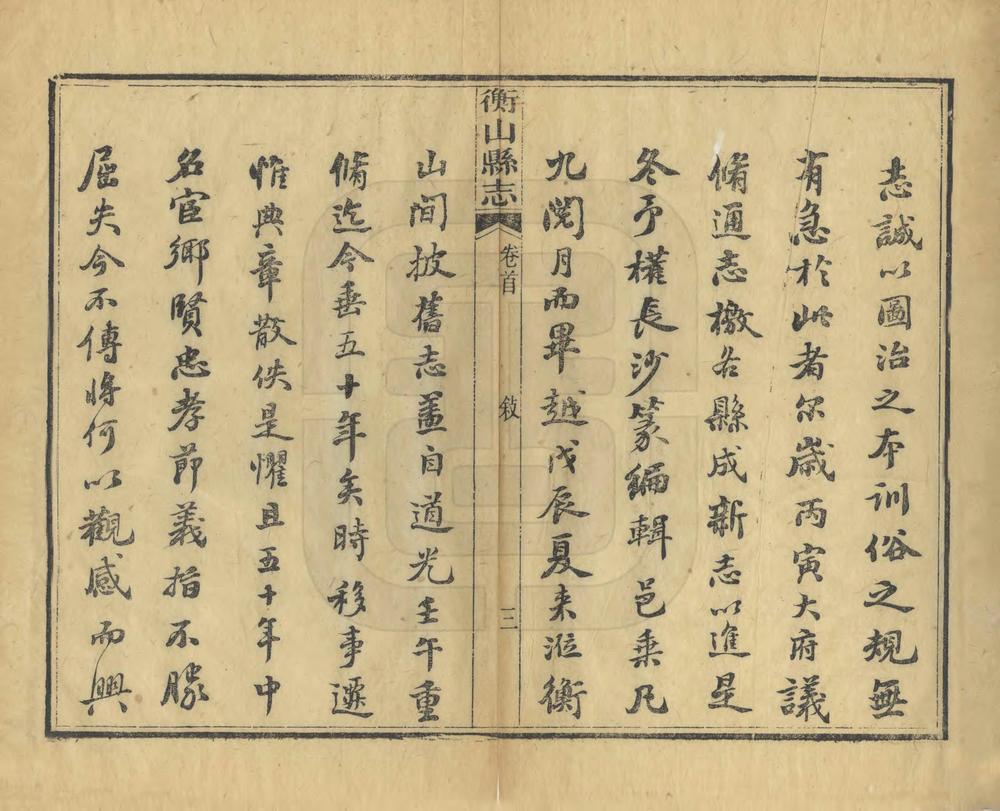 志誠以圖治之本訓俗之規無
有急於此者尔歲丙寅大府議
脩通志檄各縣成新志以進是
冬予權長沙篆編輯邑乘凡
九閱月而畢越戊辰夏来涖衡
衡山縣志
卷首
敘
三
山間披舊志盖自道光壬午重
脩迄今垂五十年矣時移事遷
惟典章散佚是懼且五十年中
名宦鄉賢忠孝節義指不勝
屈失今不傳將何以觀感而興